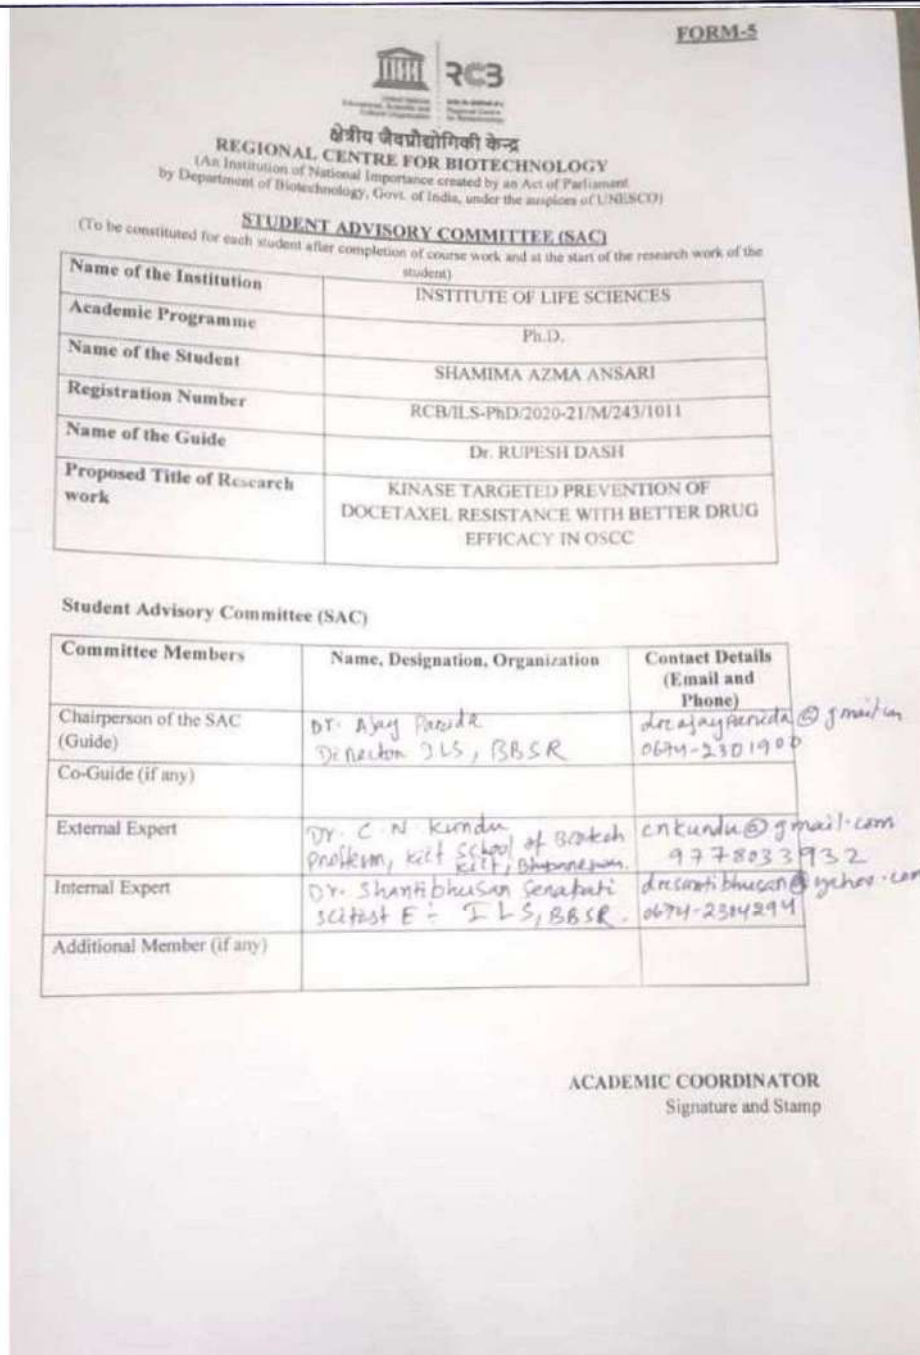 FORM-5
United Nations
Educational, Scientific and
Cultural Organization
Regional Centre
for Biotechnology
क्षेत्रीय जैवप्रौद्योगिकी केन्द्र
REGIONAL CENTRE FOR BIOTECHNOLOGY
(An Institution of National Importance created by an Act of Parliament
by Department of Biotechnology, Govt. of India, under the auspices of UNESCO)
STUDENT ADVISORY COMMITTEE (SAC)
(To be constituted for each student after completion of course work and at the start of the research work of the
student)
Name of the Institution INSTITUTE OF LIFE SCIENCES
Academic Programme Ph.D.
Name of the Student SHAMIMA AZMA ANSARI
Registration Number RCB/ILS-PhD/2020-21/M/243/1011
Name of the Guide Dr. RUPESH DASH
Proposed Title of Research KINASE TARGETED PREVENTION OF
work DOCETAXEL RESISTANCE WITH BETTER DRUG
EFFICACY IN OSCC
Student Advisory Committee (SAC)
Committee Members Name, Designation, Organization Contact Details
(Email and
Phone)
Chairperson of the SAC Dr. Ajay Parida
(Guide) Director ILS, BBSR 0674-2301900
Co-Guide (if any)
External Expert Dr. C. N. Kundu cnkundu@gmail.com
School of Biotech 9778033932
Internal Expert Dr. Shantibhusan Senapati
E - ILS, BBSR. 0674-2304294
Additional Member (if any)
ACADEMIC COORDINATOR
Signature and Stamp